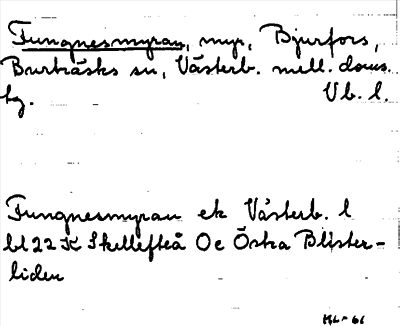 Tungnesmyran, myr, Bjurfors,
Burträsks sn, Västerb. mell. doms.
hg. Vb. l.
Tungnesmyran ek Västerb. l
bl 22 K Skellefteå Oe Östra Blister-
liden
KL-66